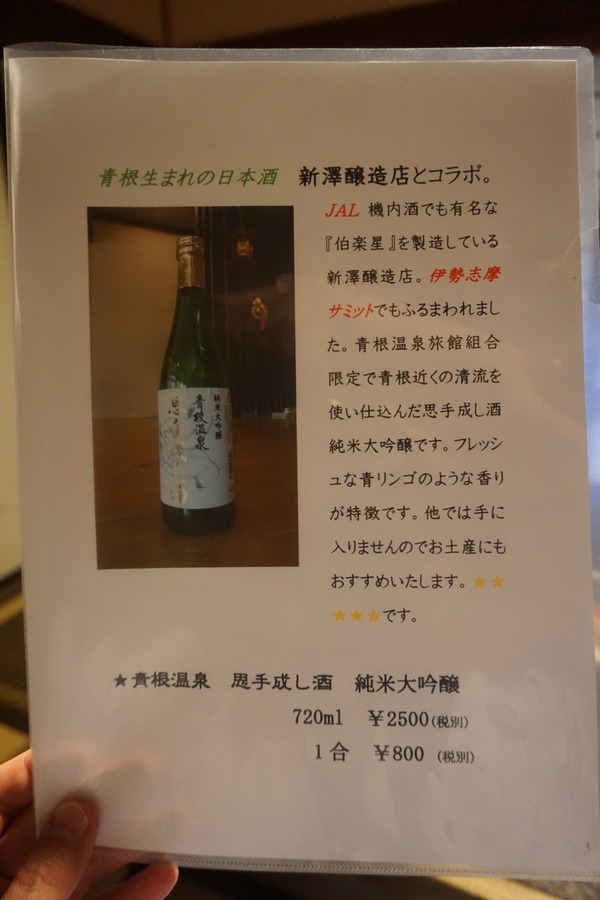 青根生まれの日本酒 新澤醸造店とコラボ。
JAL 機内酒でも有名な
『伯楽星』を製造している
新澤醸造店。伊勢志摩
サミットでもふるまわれまし
た。青根温泉旅館組合
限定で青根近くの清流を
使い仕込んだ思手成し酒
純米大吟醸です。フレッシ
ュな青リンゴのような香り
が特徴です。他では手に
入りませんのでお土産にも
おすすめいたします。★★
★★★です。
純米大吟醸
青根温泉
思手成し酒
★青根温泉 思手成し酒 純米大吟醸
720ml ¥2500(税別)
1合 ¥800 (税別)